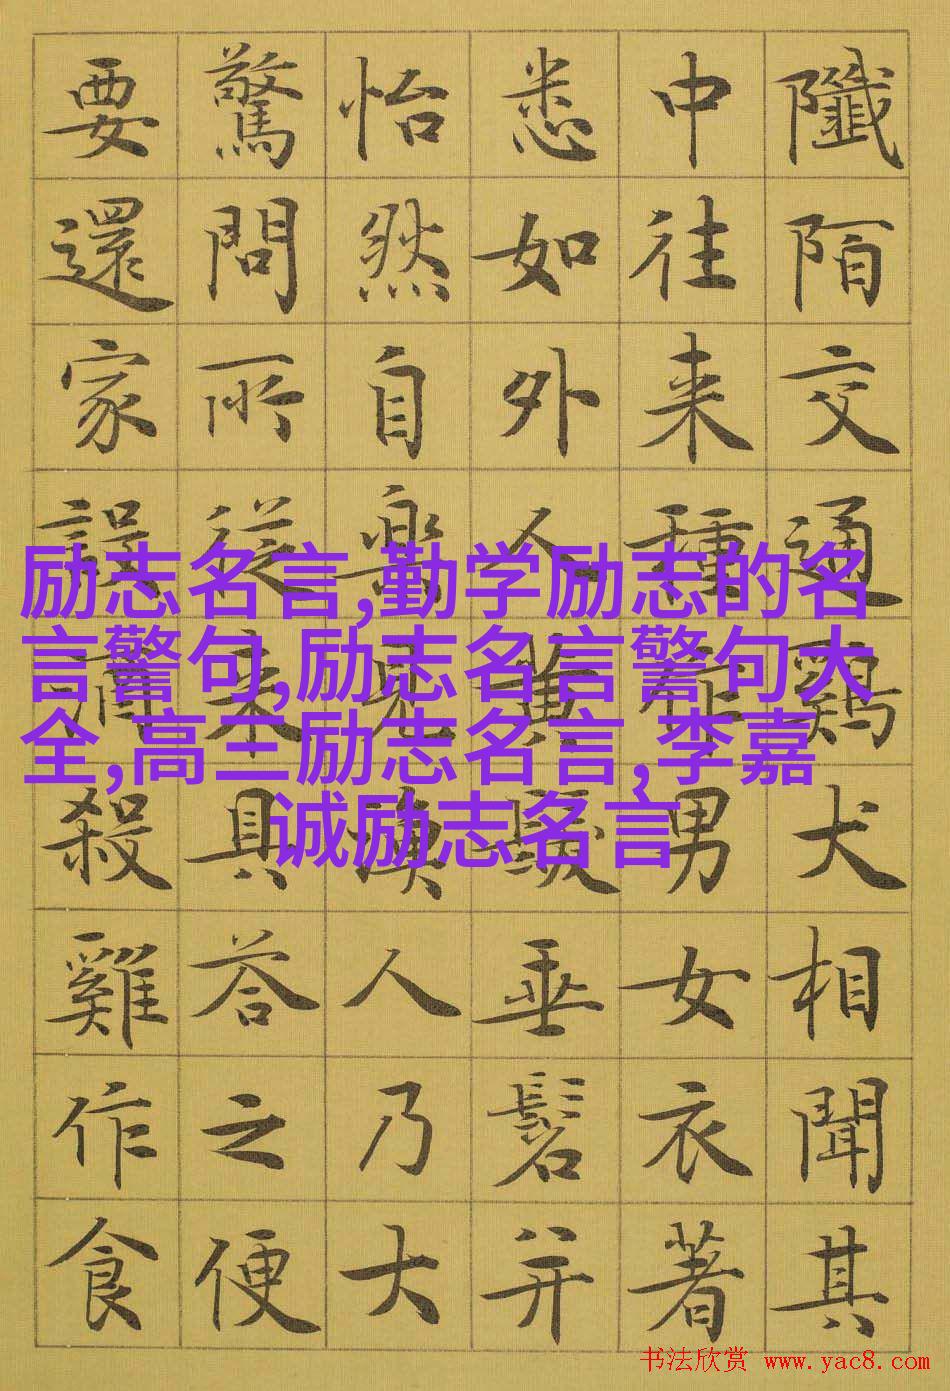 陌交通鷄犬相聞其
中往来種作男女衣著
悉如外人黄髮垂髫并
怡然自樂見漁人乃大
驚問所從来具荅之便
要還家設酒殺雞作食
励志名言,勤学励志的名
言警句,励志名言警句大
全,高三励志名言,李嘉
诚励志名言
书法欣赏 www.yac8.com